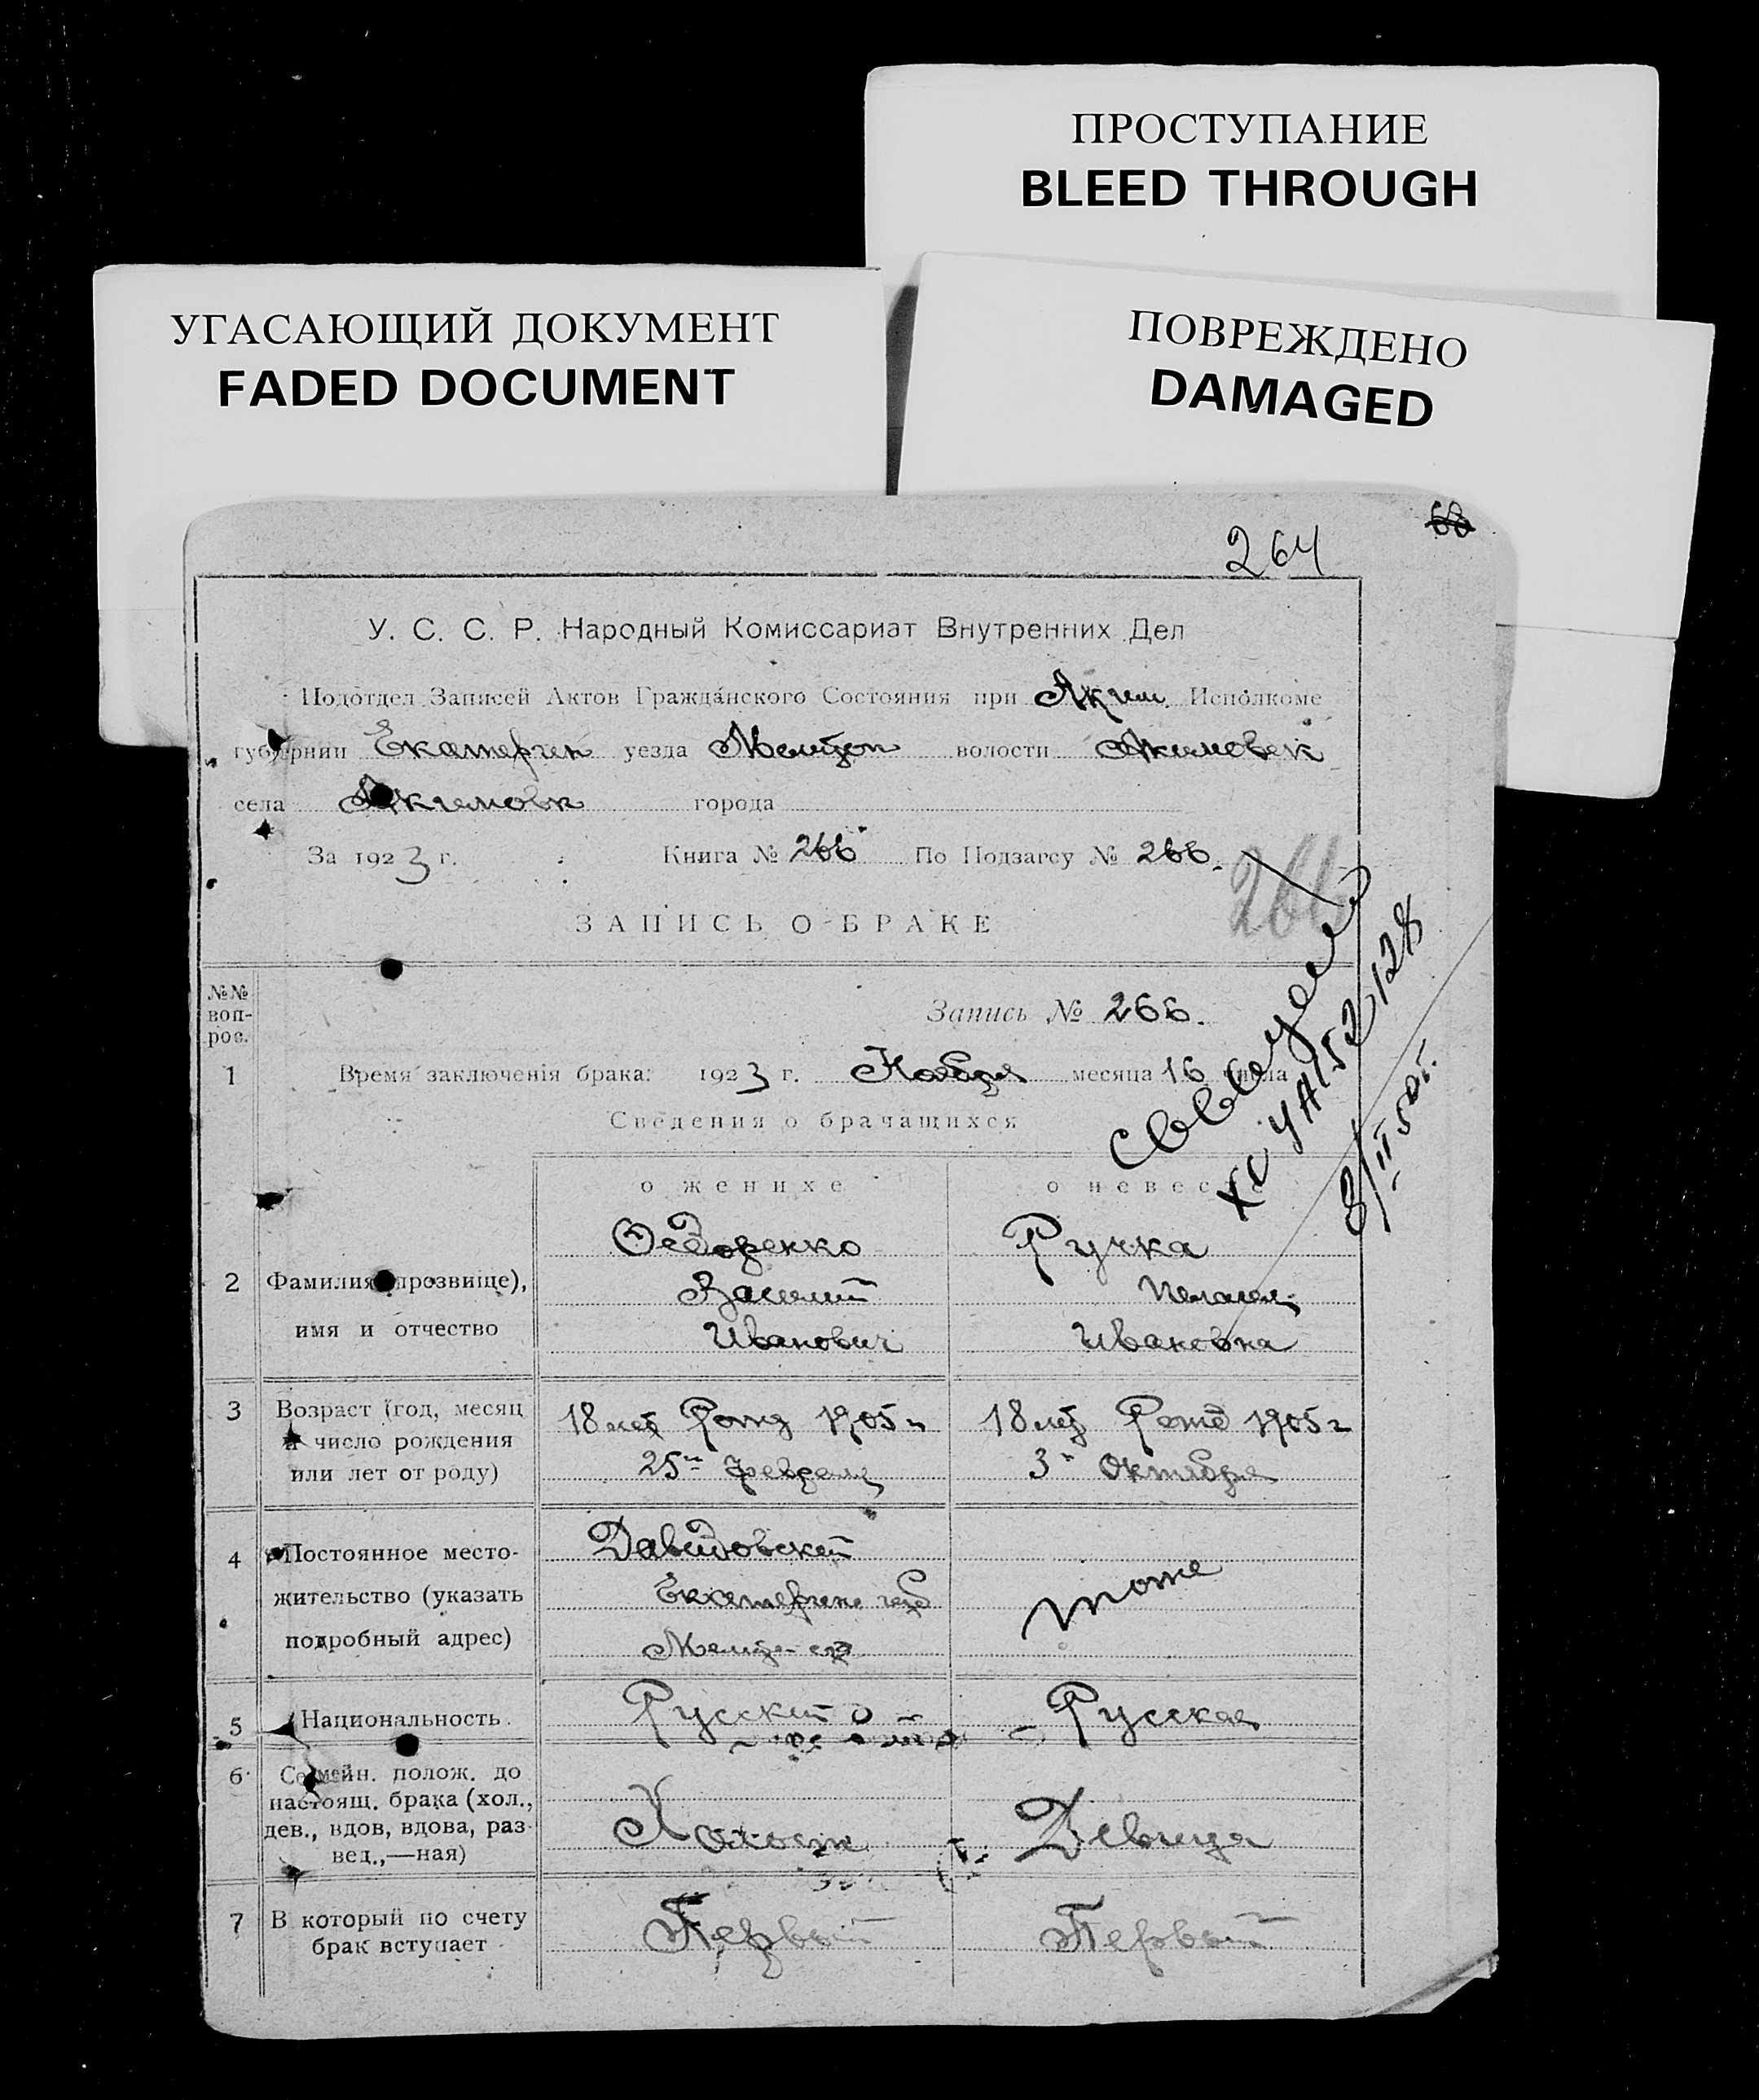 ПРОСТУПАНИЕ
BLEED THROUGH
УГАСАЮЩИЙ ДОКУМЕНТ
FADED DOCUMENT
ПОВРЕЖДЕНО
DAMAGED
68
264
У. С. С. Р. Народный Комиссариат Внутренних Дел
Подотдел Записей Актов Гражданского Состояния при Аким. Исполкоме
губернии Екатерин уезда Мелитоп волости Акимовск
села Акимовк города
За 1923 г. Книга № 266 По Подзагсу № 266.
266
ЗАПИСЬ О БРАКЕ
№№ воп-рос.
Запись № 266.
1 Время заключенія брака: 1923 г. Ноября месяца 16 числа
Сведения о брачащихся
о женихе о невесте
2 Фамилия (прозвище), имя и отчество
Федоренко
Василий
Иванович
Ручка
Пелагея
Ивановна
3 Возраст (год, месяц и число рождения или лет от роду)
18 лет Рожд 1905 г
25го февраля
18 лет Рожд 1905 г
3го Октября
4 Постоянное место-жительство (указать подробный адрес)
Давидовской
Екатерин губ
Мелит
тоже
5 Национальность.
Русский
Русская
6 Семейн. полож. до настоящ. брака (хол., дев., вдов, вдова, раз-вед.,—ная)
Холост
Девица
7 В который по счету брак вступает
Первый
Первый